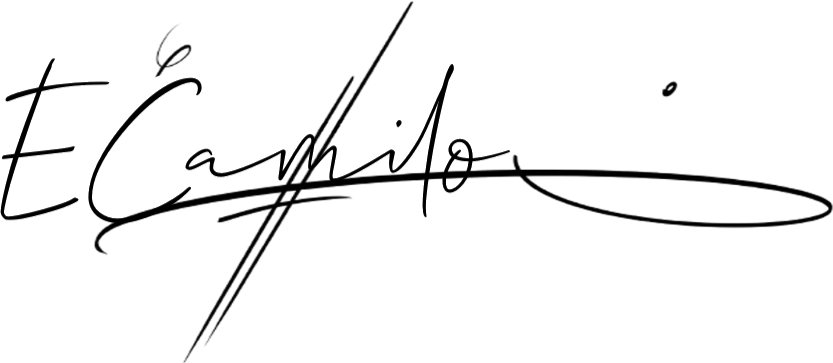 E Camilo